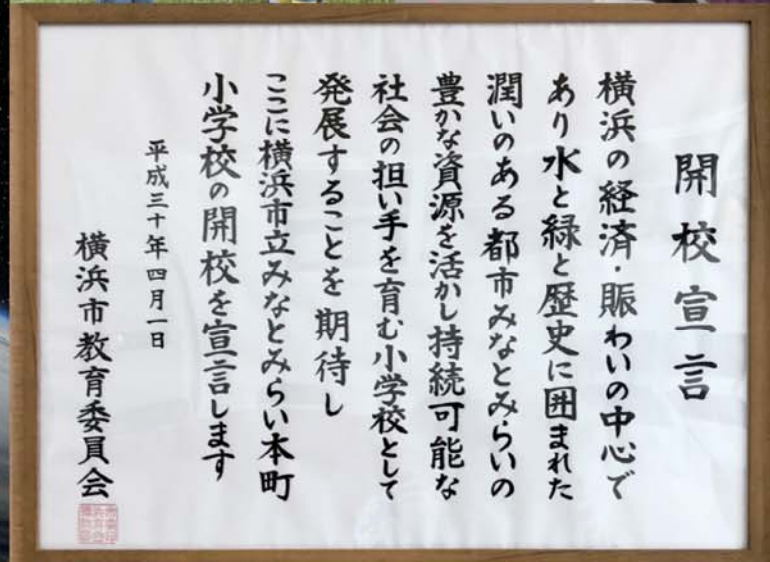 開校宣言
横浜の経済・賑わいの中心で
あり水と緑と歴史に囲まれた
潤いのある都市みなとみらいの
豊かな資源を活かし持続可能な
社会の担い手を育む小学校として
発展することを期待し
ここに横浜市立みなとみらい本町
小学校の開校を宣言します
平成三十年四月一日
横浜市教育委員会